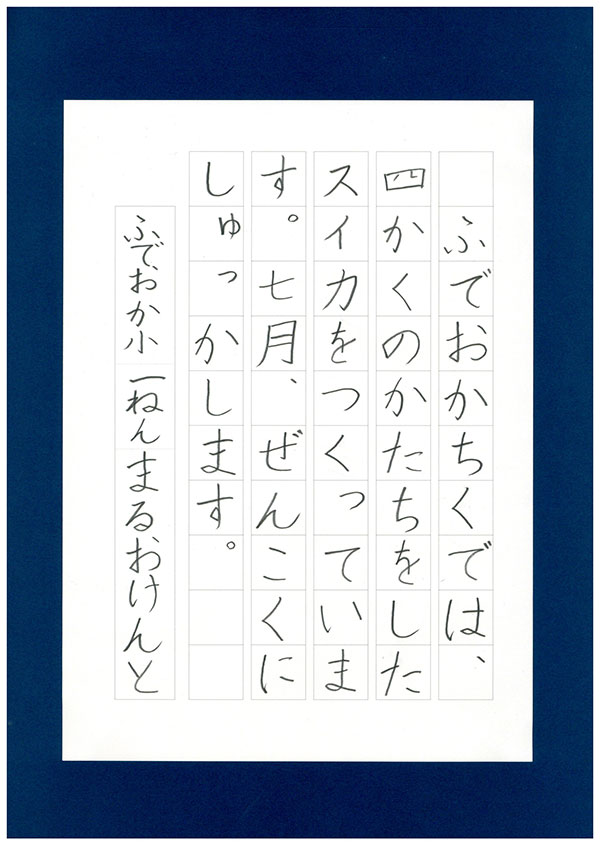 ふでおかちくでは、
四かくのかたちをした
スイカをつくっていま
す。七月、ぜんこくに
しゅっかします。
ふでおか小 一ねん まるおけんと